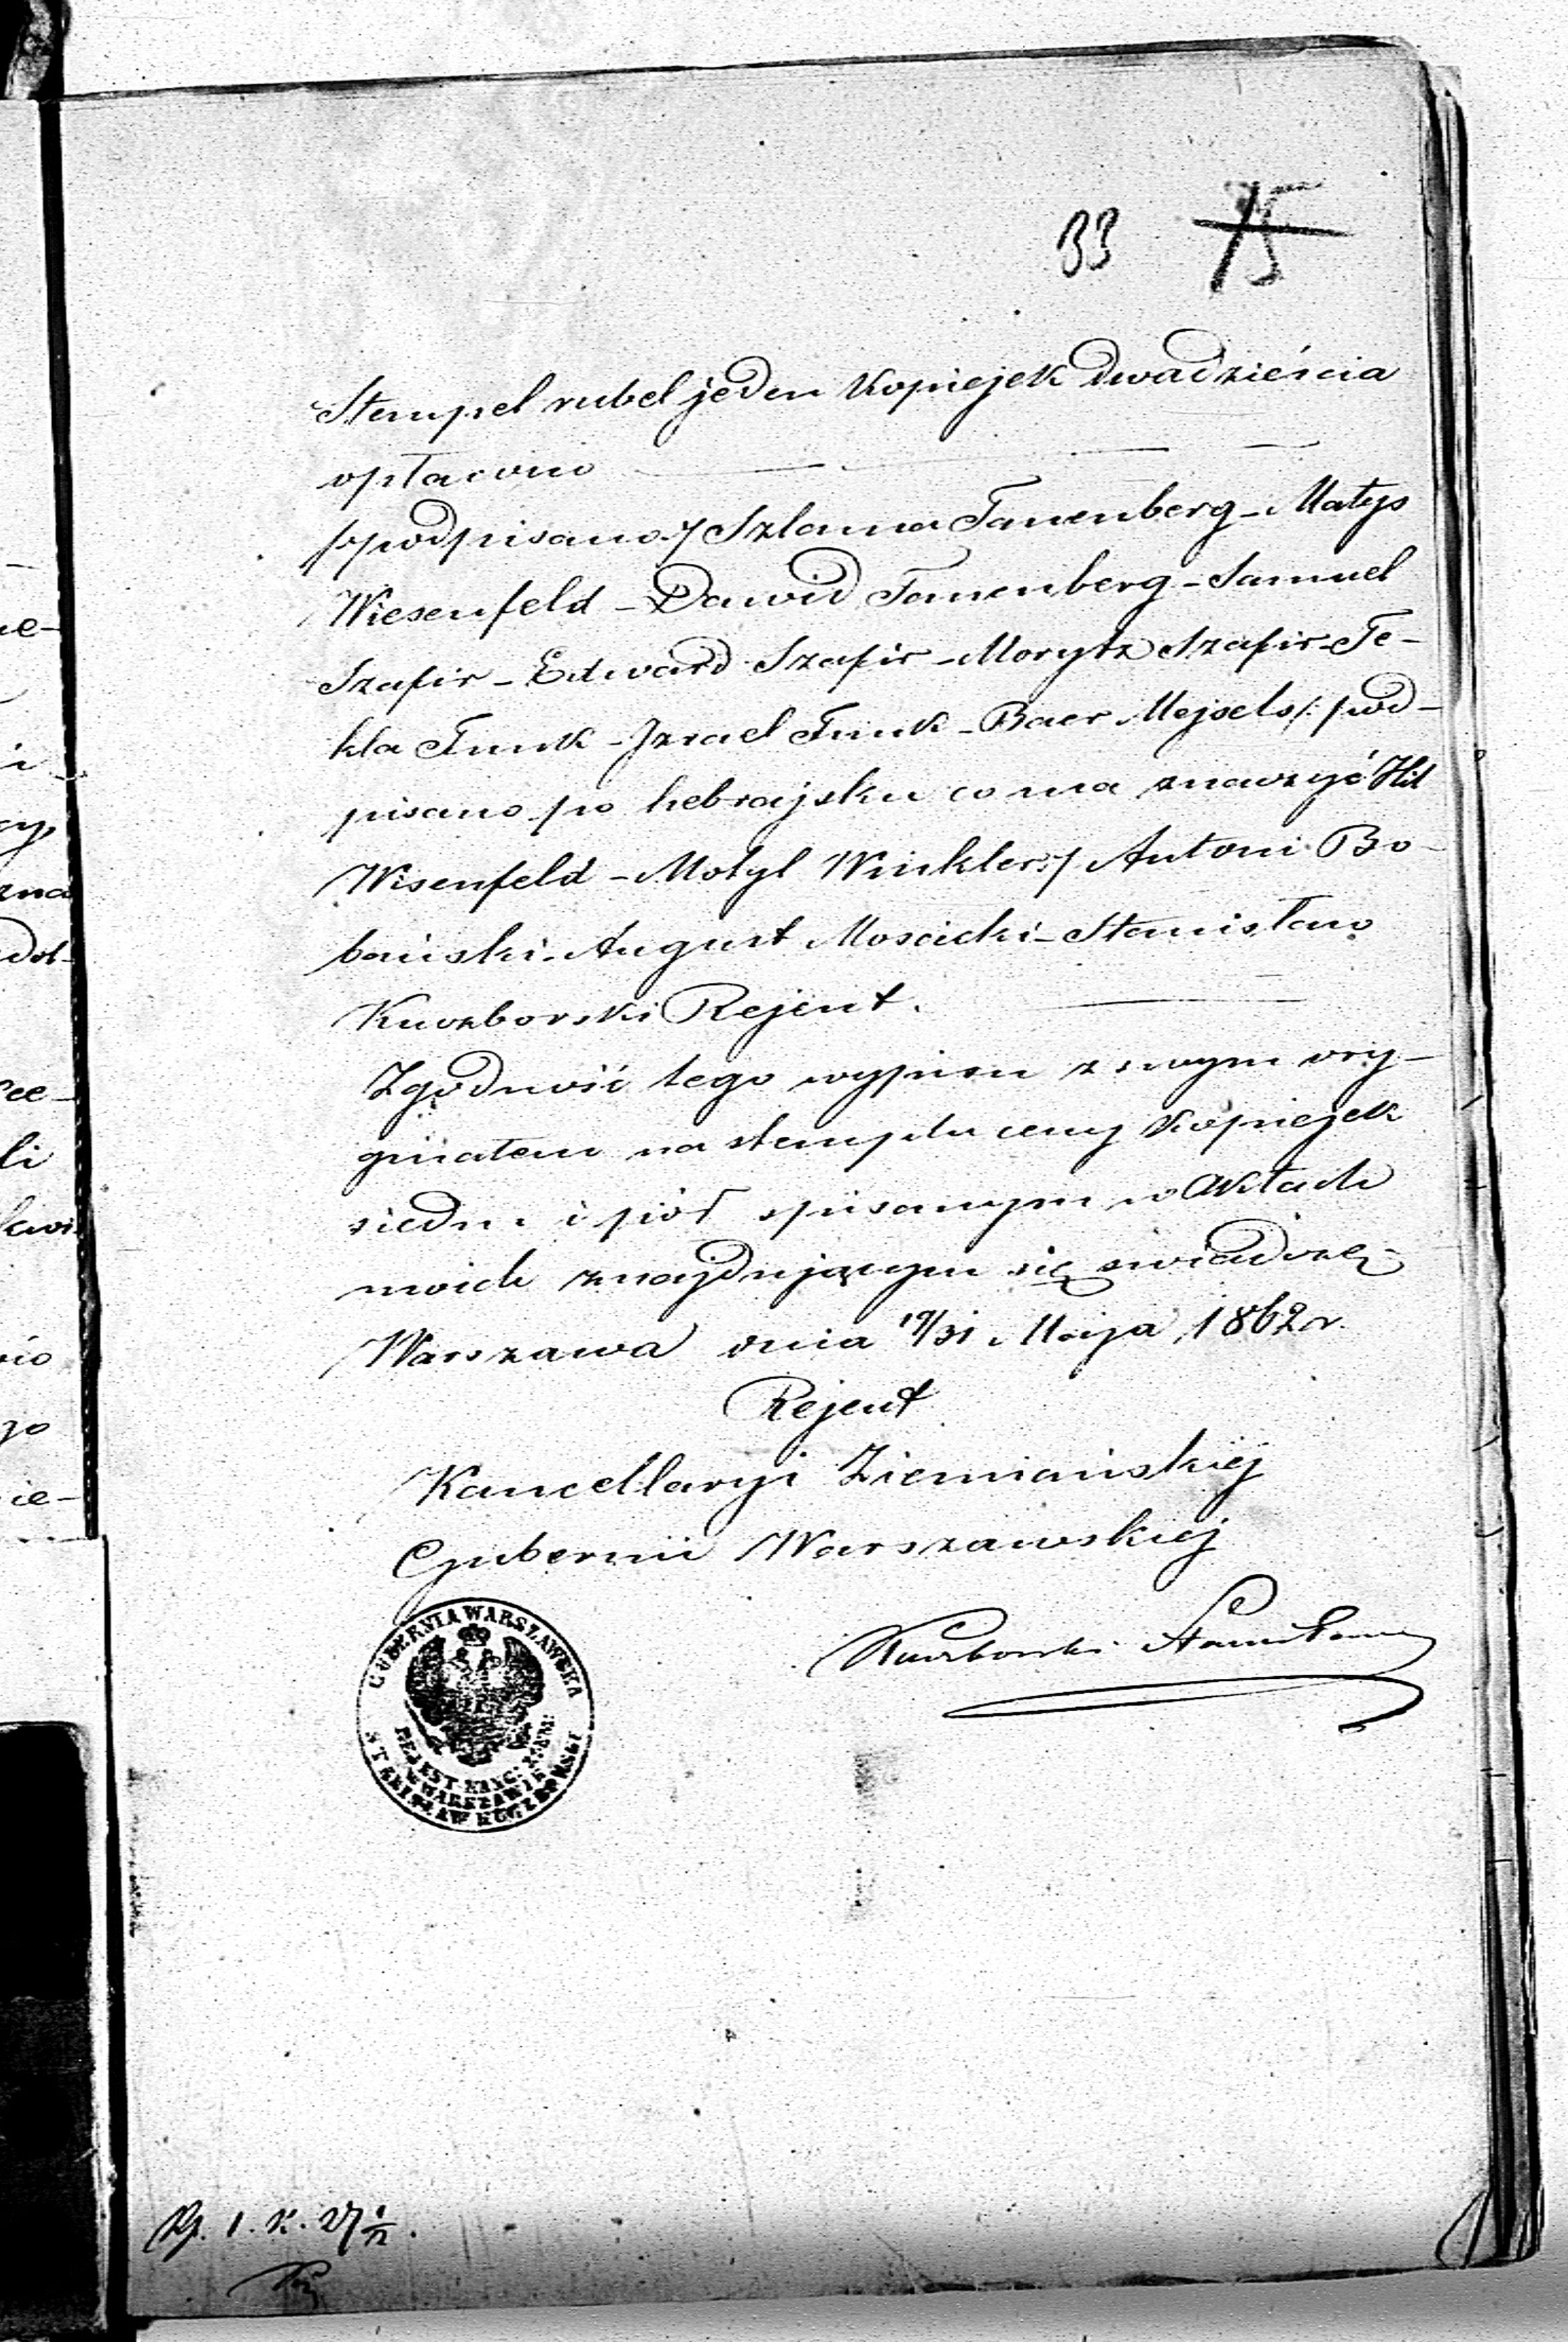 33 75
Stempel rubel jeden Kopiejek dwadzieścia
opłacono
/:podpisano:/ Szlama Tanenberg - Matys
Wiesenfeld - Dawid Tanenberg - Samuel
Szafir - Edward Szafir - Morytz Szafir - Te-
kla Funk - Izrael Funk - Baer Mejsels /: pod-
pisano po hebrajsku co ma znaczyć Hil
Wisenfeld - Motyl Winkler :/ Antoni Bo-
bański - August Mościcki - Stanisław
Kuczborski Rejent.
Zgodność tego wypisu z swym ory-
ginałem na stemplu ceny Kopiejek
siedm i pół spisanym w Aktach
moich znajdującym się świadczę -
Warszawa dnia 19/31 Maja 1862 r.
Rejent
Kancellaryi Ziemiańskiej
Gubernii Warszawskiej
Kuczborski Stanisław
GUBERNIA WARSZAWSKA
REJENT KANC: ZIEM:
W WARSZAWIE
STANISŁAW KUCZBORSKI
1. K. 27 1/2.